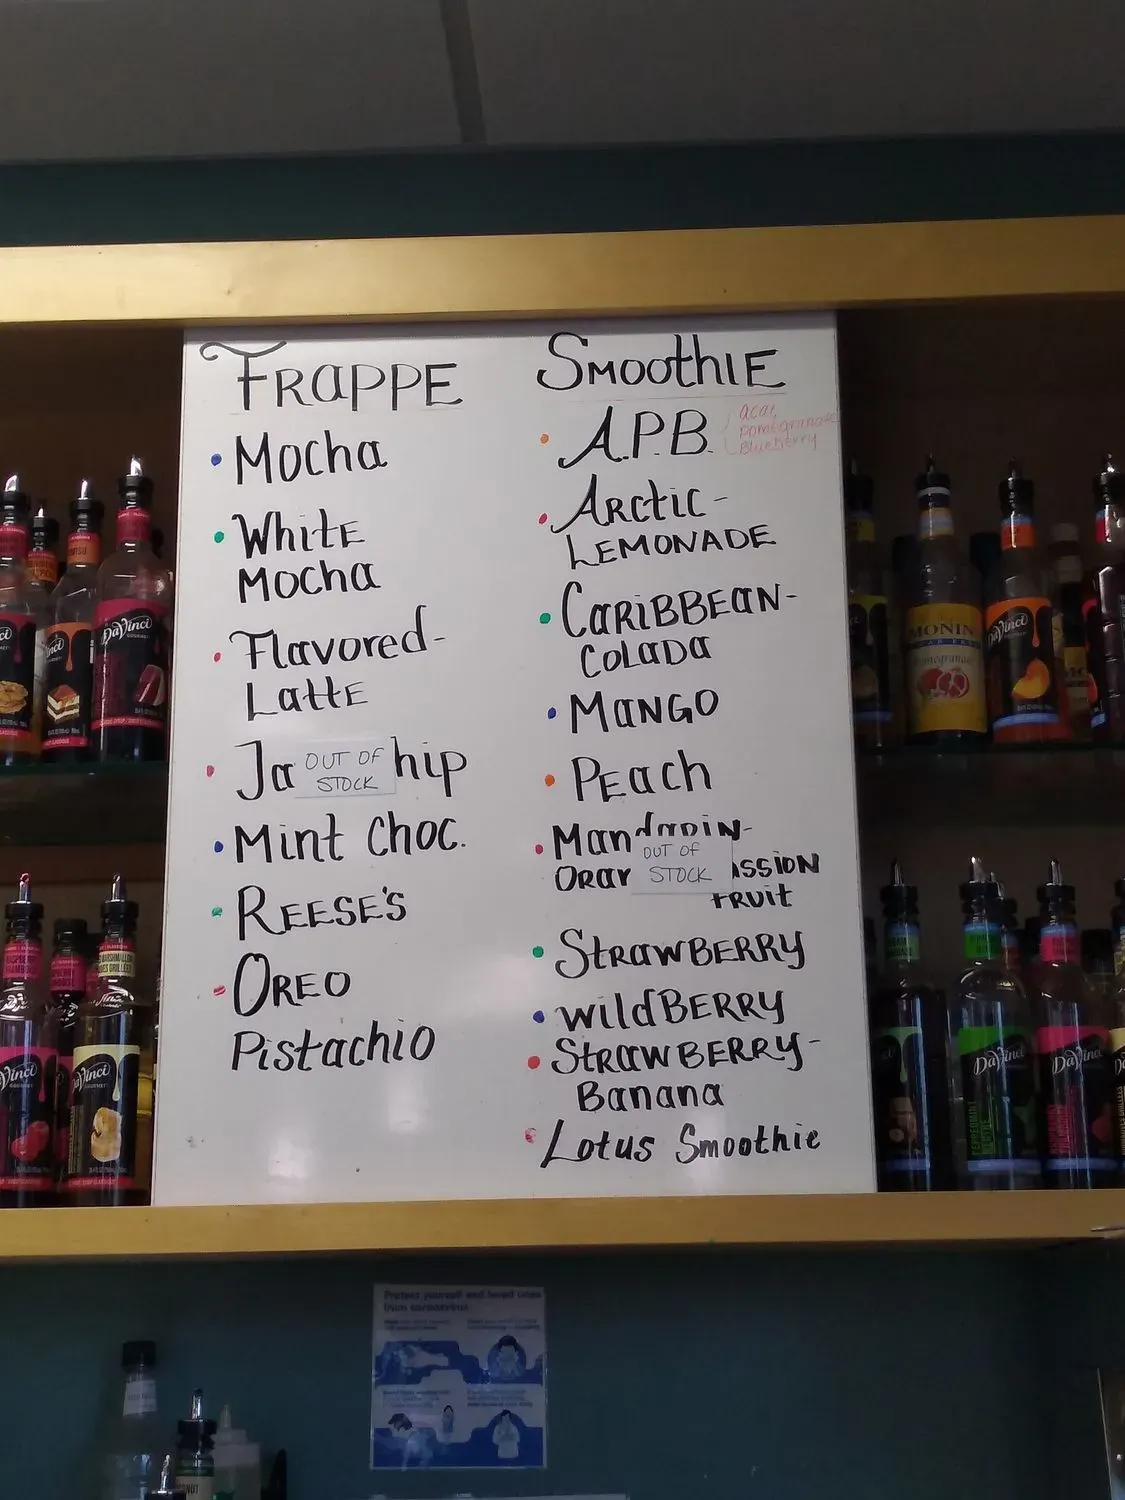 FRAPPE
Mocha
White
Mocha
Flavored-
Latte
Ja hip
OUT OF
STOCK
Mint Choc.
REESE'S
OREO
Pistachio
SMOOTHIE
A.P.B.
acai,
pomegranate
Blueberry
ARCTIC-
LEMONADE
CARIBBEAN-
COLADA
MANGO
PEACH
Mandarin-
OUT OF
STOCK
FRUIT
STRAWBERRY
WILDBERRY
STRAWBERRY-
Banana
Lotus Smoothie
DaVinci
GOURMET
DaVinci
DaVinci
MONIN
Pomegranate
DaVinci
DaVinci
DaVinci
Protect yourself and loved ones
from coronavirus